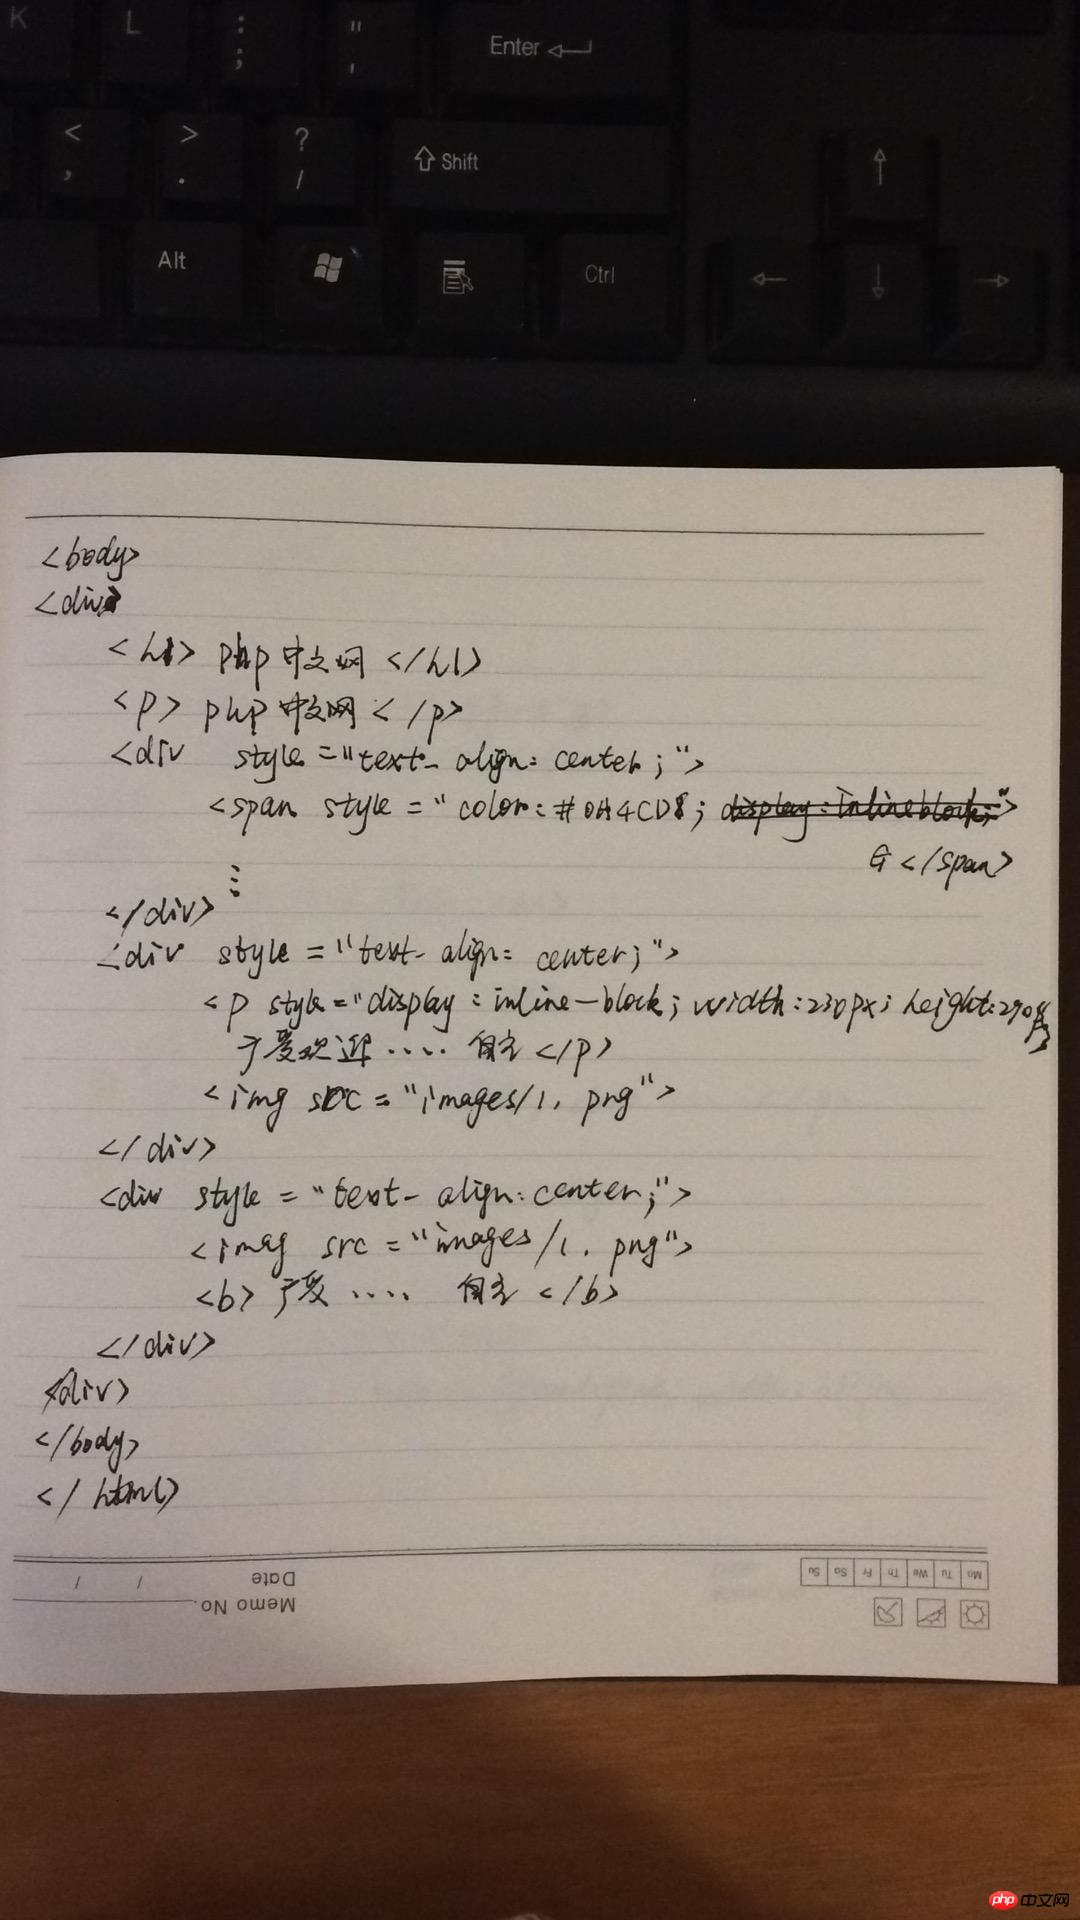 K L : ; " ' Enter
< , > . ? / Shift
Alt Ctrl
<body>
<div>
<h1> php中文网 </h1>
<p> php中文网 </p>
<div style="text-align: center;">
<span style="color:#0H4CD8; display:inlineblock;">
G </span>
⋮
</div>
<div style="text-align: center;">
<p style="display:inline-block; width:230px; height:290px">
于爱欢迎 .... 自主 </p>
<img src="images/1.png">
</div>
<div style="text-align:center;">
<imag src="images/1.png">
<b> .... 自主 </b>
</div>
</div>
</body>
</html>
Mo Tu We Th Fr Sa Su
Date / /
Memo No.
php 中文网